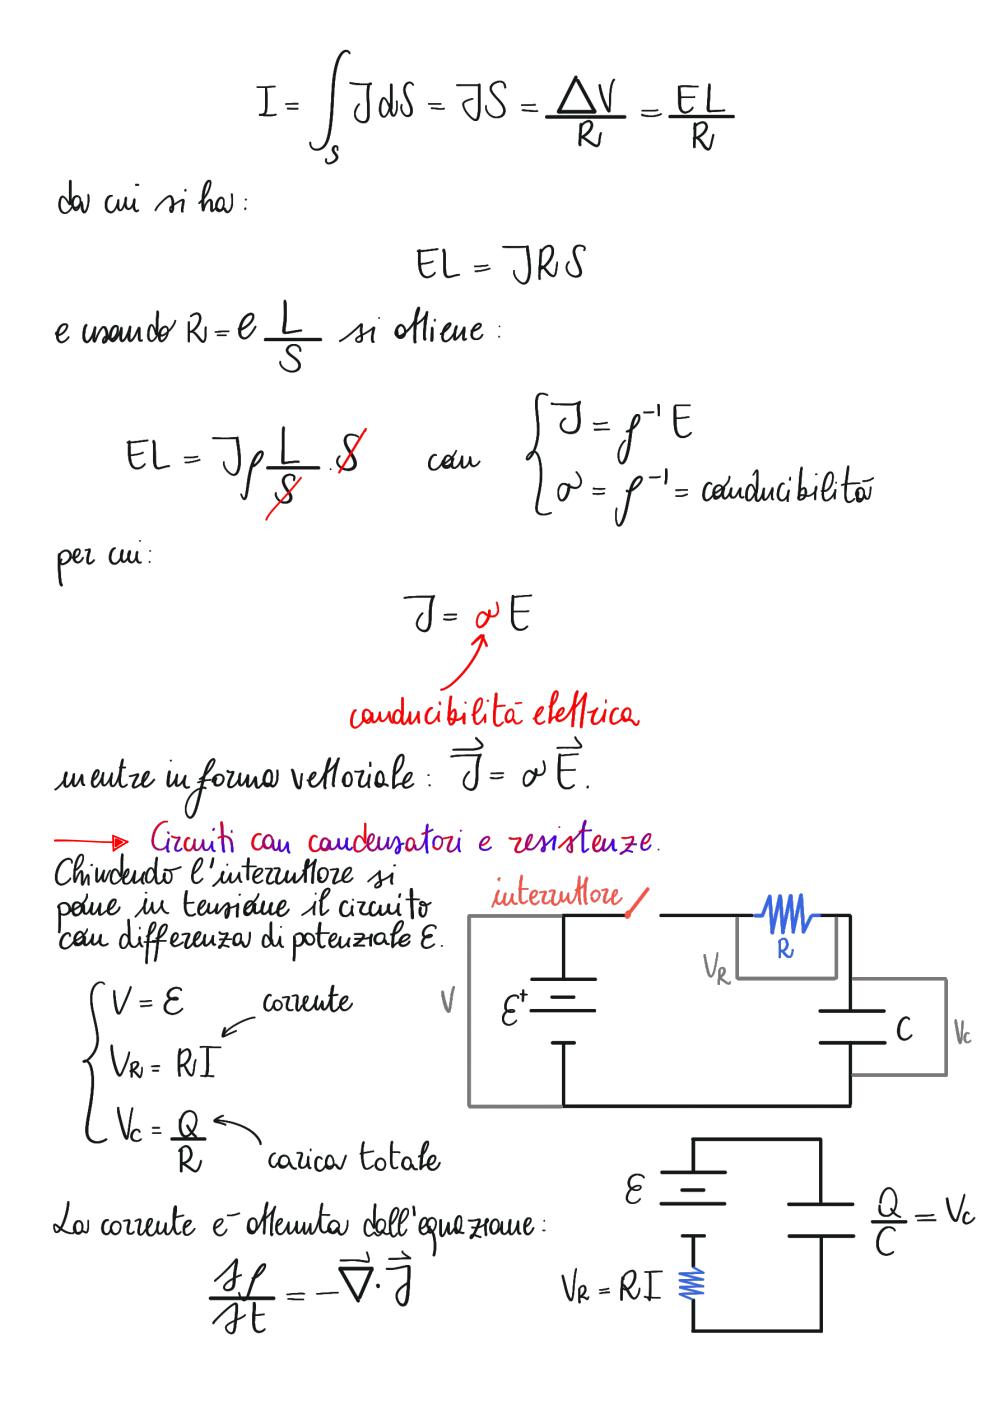 I = ∫_S J dS = JS = ΔV/R = EL/R
da cui si ha:
EL = JRS
e usando R = ρ L/S si ottiene:
EL = Jρ L/S · S con { J = ρ⁻¹ E
σ = ρ⁻¹ = conducibilità
per cui:
J = σ E
conducibilità elettrica
mentre in forma vettoriale: J⃗ = σ E⃗.
Circuiti con condensatori e resistenze.
Chiudendo l'interruttore si
pone in tensione il circuito
con differenza di potenziale ℰ.
interruttore
R
V_R
V
ℰ +
C
V_C
{ V = ℰ
corrente
V_R = RI
V_C = Q/R
carica totale
ℰ
Q/C = V_C
V_R = RI
La corrente è ottenuta dall'equazione:
∂ρ/∂t = −∇⃗ · J⃗